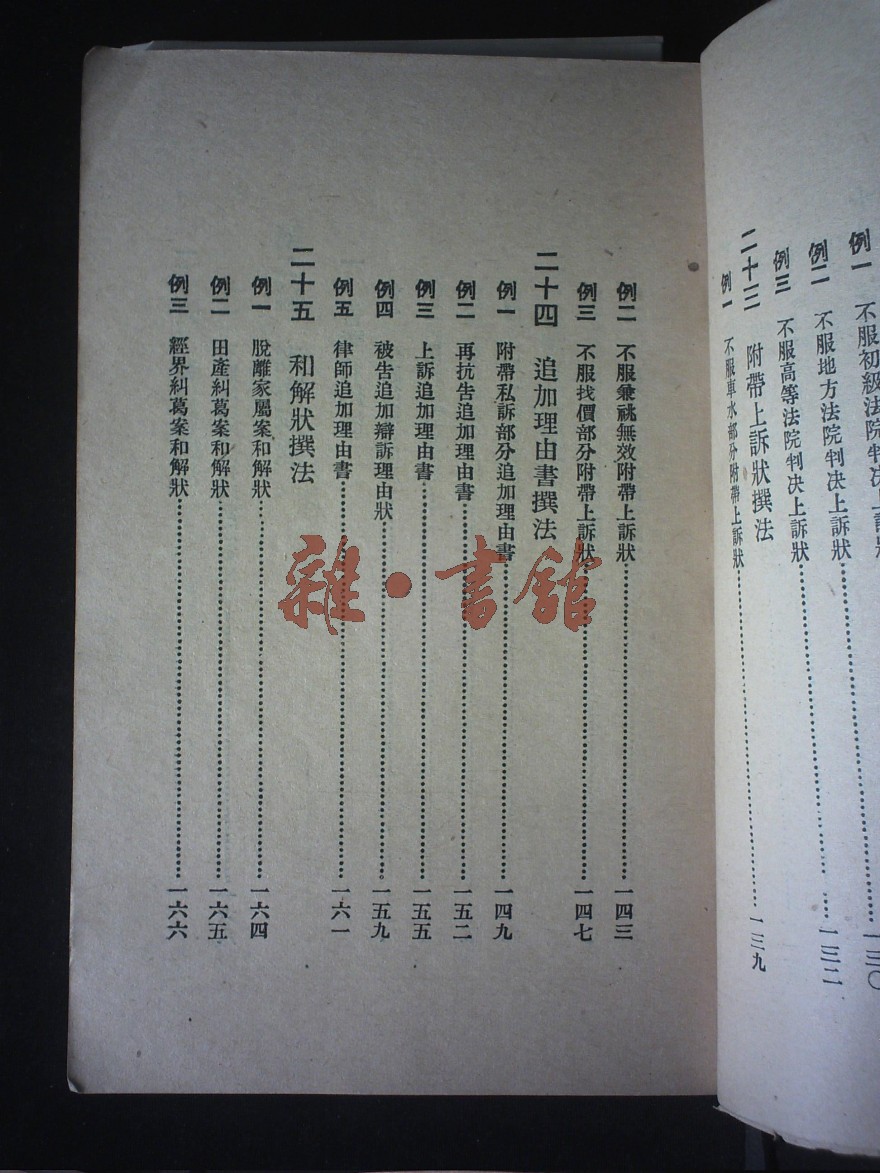 例一　不服初級法院判決上訴狀……一三〇
例二　不服地方法院判決上訴狀……一三二
例三　不服高等法院判決上訴狀
二十三　附帶上訴狀撰法
例一　不服車水部分附帶上訴狀……一三九
例二　不服兼祧無效附帶上訴狀……一四三
例三　不服找價部分附帶上訴狀……一四七
二十四　追加理由書撰法
例一　附帶私訴部分追加理由書……一四九
例二　再抗告追加理由書……一五二
例三　上訴追加理由書……一五五
例四　被告追加辯訴理由狀……一五九
例五　律師追加理由書……一六一
二十五　和解狀撰法
例一　脫離家屬案和解狀……一六四
例二　田產糾葛案和解狀……一六五
例三　經界糾葛案和解狀……一六六
雜·書館